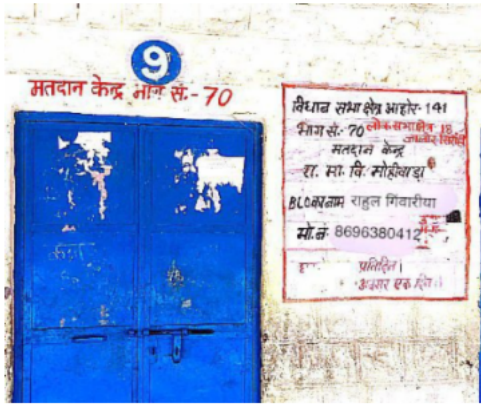 9
मतदान केन्द्र भाग सं.- 70
विधान सभा क्षेत्र आहोर- 141
भाग सं.- 70 लोकसभा क्षेत्र 18
जालोर सिरोही
मतदान केन्द्र
रा. मा. वि. मोहीवाड़ा
BLO का नाम राहुल गिंवारीया
मो.नं 8696380412
प्रतिदिन।